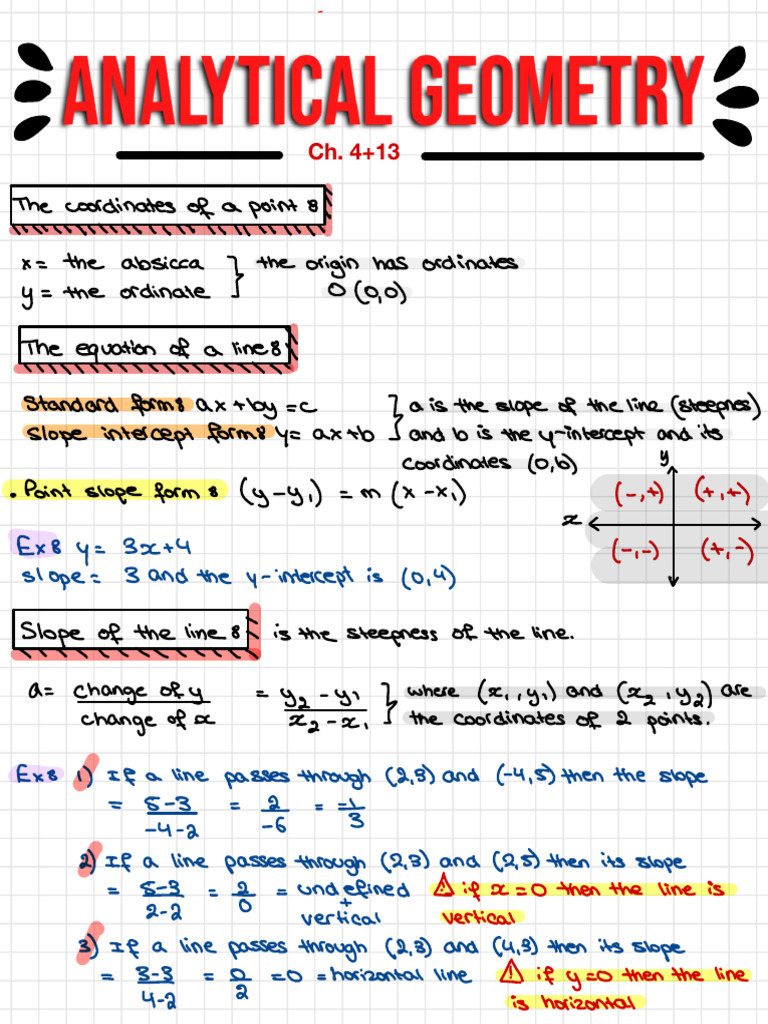 ANALYTICAL GEOMETRY
Ch. 4+13
The coordinates of a point :
x = the absicca } the origin has ordinates
y = the ordinate } O (0,0)
The equation of a line :
Standard form : ax + by = c } a is the slope of the line (steepnes)
Slope intercept form : y = ax + b } and b is the y-intercept and its
coordinates (0,b)
• Point slope form : (y - y₁) = m (x - x₁)
y
(-,+) (+,+)
x
(-,-) (+,-)
Ex : y = 3x + 4
slope = 3 and the y-intercept is (0,4)
Slope of the line : is the steepness of the line.
a = change of y / change of x = y₂ - y₁ / x₂ - x₁ } where (x₁, y₁) and (x₂, y₂) are
the coordinates of 2 points.
Ex : 1) If a line passes through (2,3) and (-4,5) then the slope
= 5-3 / -4-2 = 2 / -6 = -1 / 3
2) If a line passes through (2,3) and (2,5) then its slope
= 5-3 / 2-2 = 2 / 0 = undefined + vertical ⚠ if x = 0 then the line is
vertical
3) If a line passes through (2,3) and (4,3) then its slope
= 3-3 / 4-2 = 0 / 2 = 0 = horizontal line ⚠ if y = 0 then the line
is horizontal